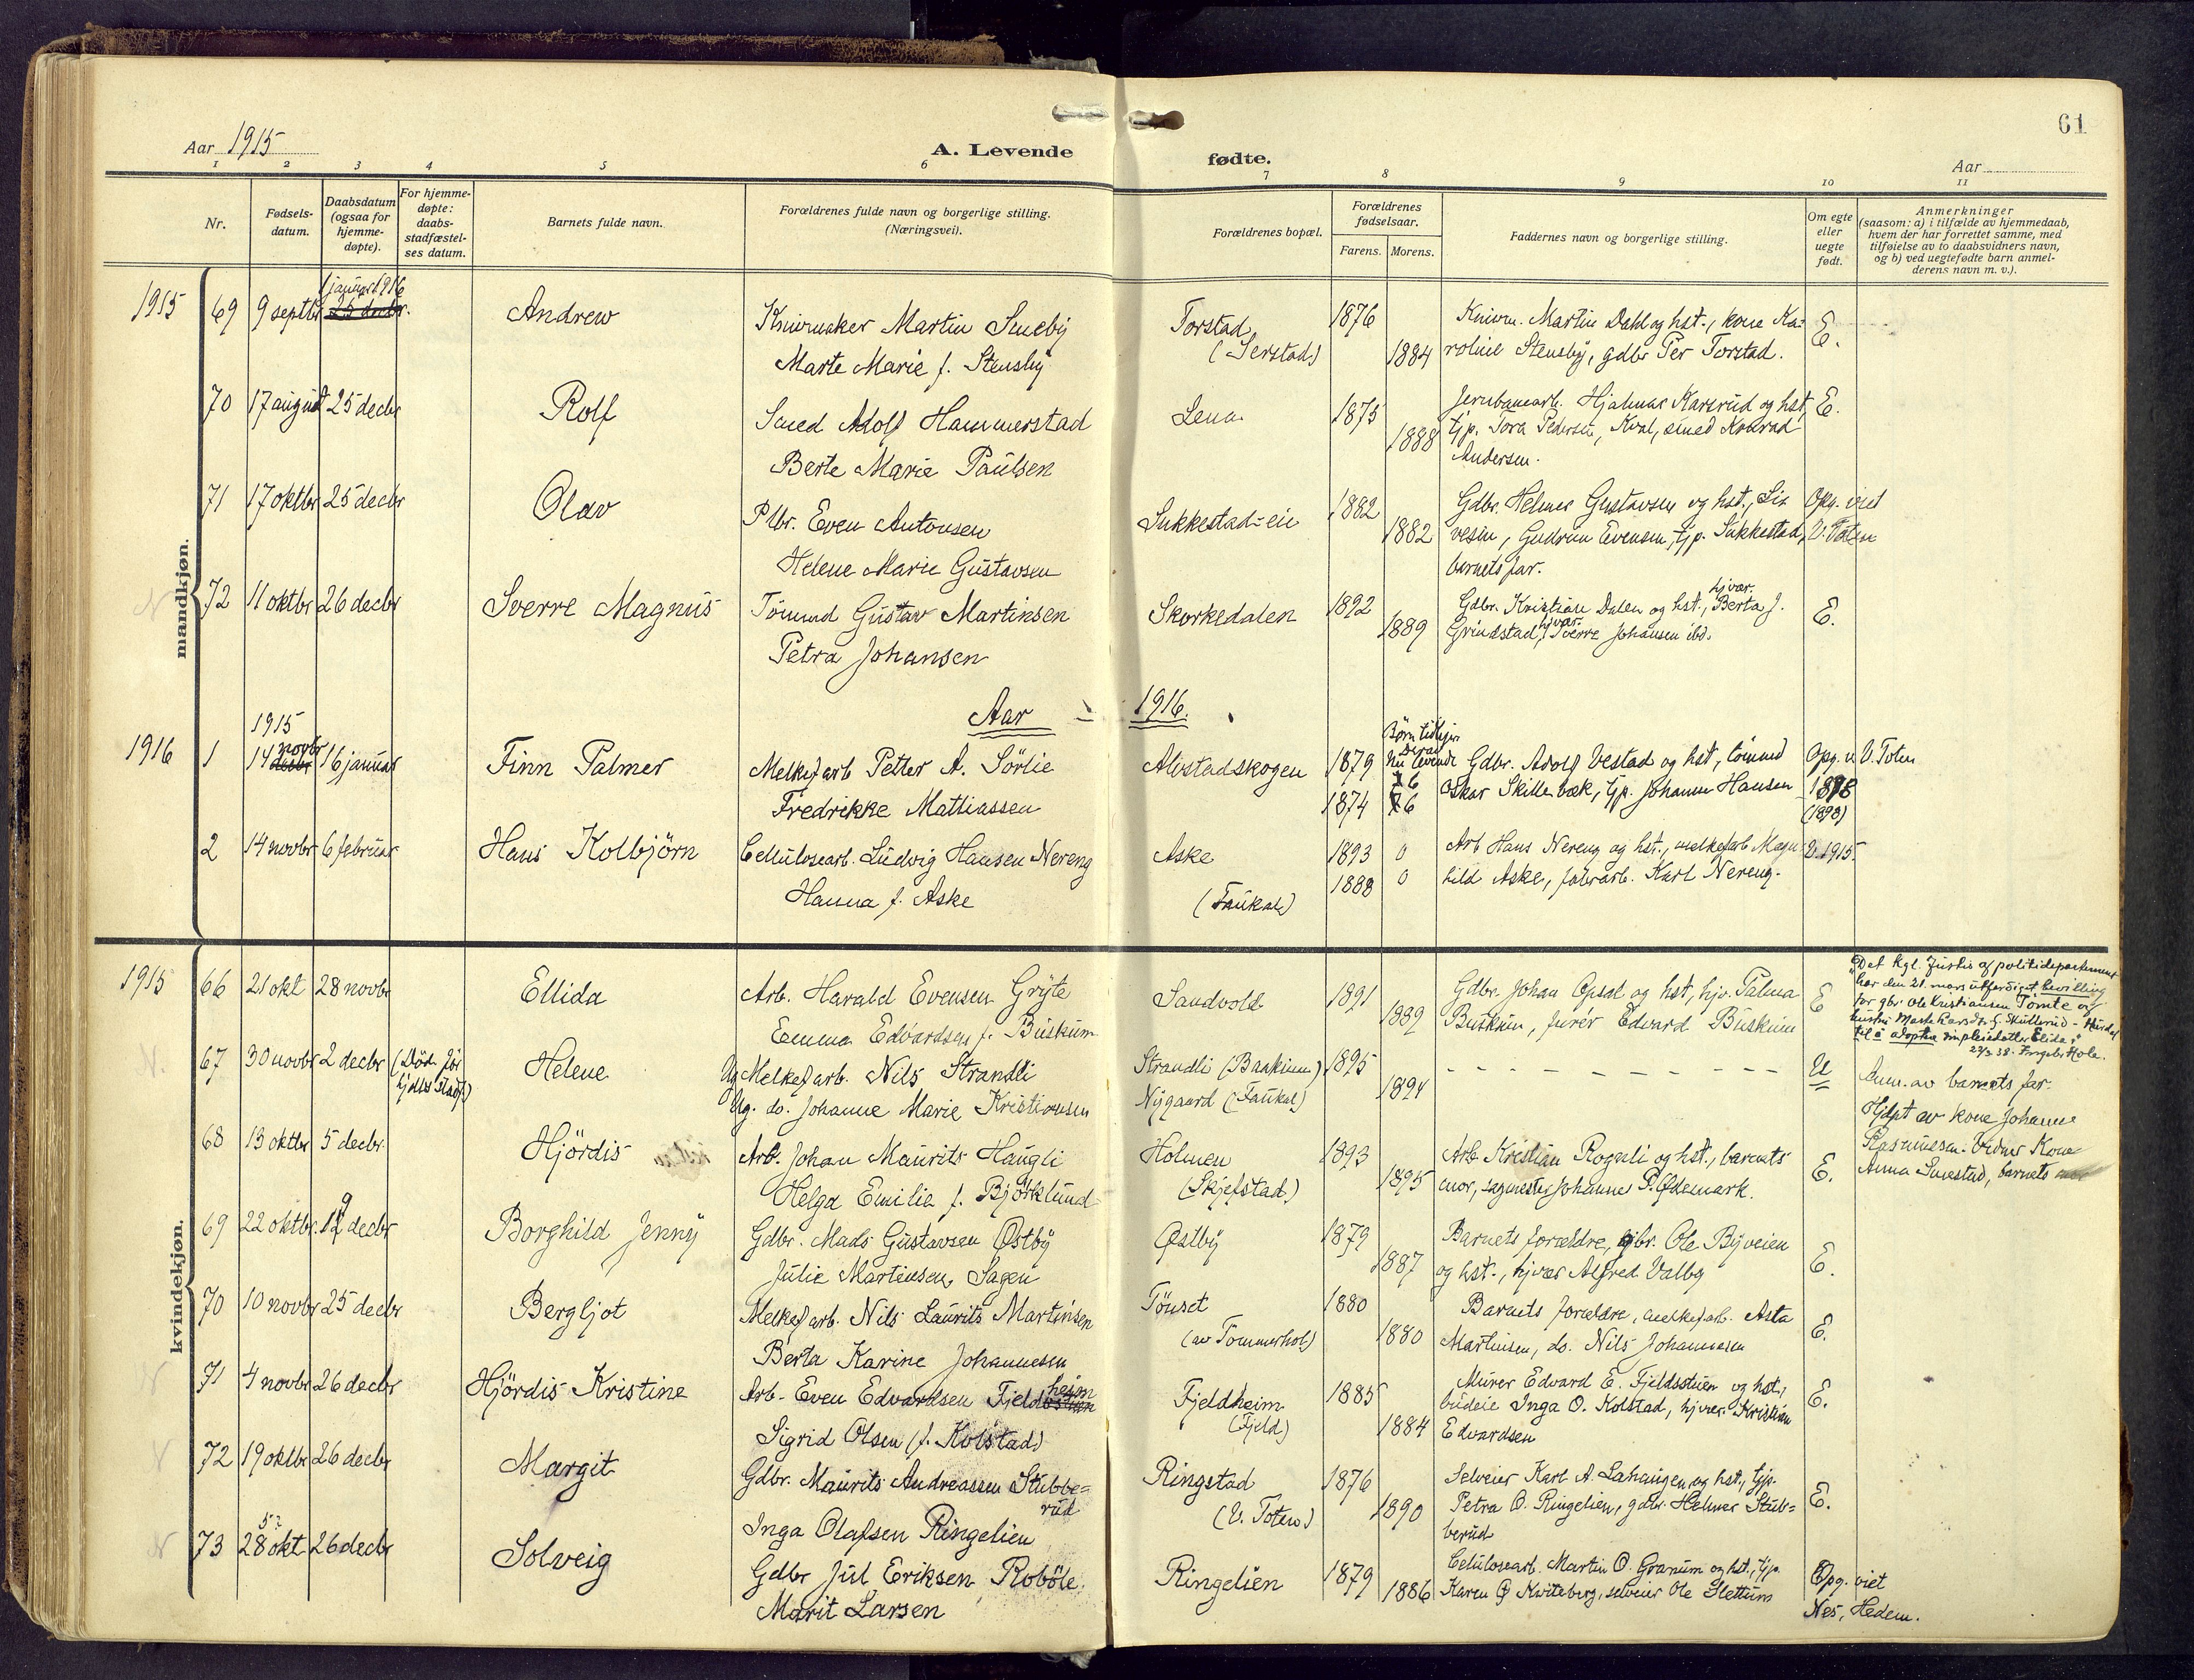 61
Aar 1915
A. Levende fødte.
Aar
1 2 3 4 5 6 7 8 9 10 11
Nr.
Fødsels-
datum.
Daabsdatum
(ogsaa for
hjemme-
døpte).
For hjemme-
døpte:
daabs-
stadfæstel-
ses datum.
Barnets fulde navn.
Forældrenes fulde navn og borgerlige stilling.
(Næringsvei).
Forældrenes bopæl.
Forældrenes
fødselsaar.
Farens. Morens.
Faddernes navn og borgerlige stilling.
Om egte
eller
uegte
født.
Anmerkninger
(saasom: a) i tilfælde av hjemmedaab,
hvem der har forrettet samme, med
tilføielse av to daabsvidners navn,
og b) ved uegtefødte barn anmel-
derens navn m. v.).
mandkjøn.
1915 69 9 septbr 1 januar 1916 25 decbr. Andrew Martin Torstad 1876 Martin Dahl og hst., kone Ka- E.
Marte Marie f. Stensby 1884 roline Stensby, gdbr Per Torstad.
70 17 august 25 decbr Rolf Smed Adolf Hammerstad Lena 1875 Hjalmar Karsrud og hst, E.
Berte Marie Paulsen 1888 tjp. Tora Pedersen, Kval, smed Konrad
Andersen.
71 17 oktbr 25 decbr Olav Even Antonsen Sukkestad-eie 1882 Gdbr. Helmer Gustavsen og hst., Opg. viet
Helene Marie Gustavsen 1882 Gudrun Evensen, tjp. Sukkestad, V. Toten
barnets far.
72 11 oktbr 26 decbr Sverre Magnus Tömmd Gustav Martinsen Skorkedalen 1892 Gdbr. Kristian Dalen og hst., hjvær. Berta J. E.
Petra Johansen 1889 Grindstad, hjvær. Sverre Johansen ibd.
Aar - 1916.
1916 1 1915 14 novbr decbr 16 januar Finn Palmer Melkefarb Petter A. Sörlie Alvstadskogen 1879 Börn tidligere Derav nu levende 6 Gdbr. Adolf Vestad og hst, tömmd Opg. v. V. Toten
Fredrikke Mattiassen 1874 6 Oskar Skillebæk, tjp. Johanne Hansen 1898
(1898)
2 14 novbr 6 februar Hans Kolbjörn Cellulosearb. Ludvig Hansen Nereng Aske 1893 0 Arb Hans Nereng og hst., melkefarb Magn- V. 1915.
Hanna f. Aske (Faukal) 1888 0 hild Aske, fabrarb. Karl Nereng.
kvindekjøn.
1915 66 21 okt 28 novbr Ellida Arb. Harald Evensen Gryte Sandvold 1891 Gdbr. Johan Opsal og hst, hjv. Palma E
Emma Edvardsen f. Buskum 1889 Buskum, Edvard Buskum
"Det kgl. Justis og politidepartement
har den 21. mars utferdiget bevilling
for gbr. Ole Kristiansen Tömte og
hustru Marte Larsdtr f. Skullerud - Hurdal
til å adoptere sin pleiedatter Elida."
67 30 novbr 2 decbr (Död för hjdps stadf.) Helene Ug Melkefarb. Nils Strandli Strandli (Baskum) 1895 - - - - U Anm. av barnets far.
Ug. do. Johanne Marie Kristiansen Nygaard (Faukal) 1894 Hjdpt av kone Johanne
Rasmussen. Vidner Kone
Anna barnets
68 13 oktbr 5 decbr. Hjördis Arb. Johan Maurits Haugli Holmen 1893 Arb Kristian Rognli og hst., barnets E.
Helga Emilie f. Björklund (Skjefstad) 1895 mor, sagmester Johannes P. Ødemark.
69 22 oktbr. 19 decbr Borghild Jenny Gdbr. Mads Gustavsen Østby Østby 1879 Barnets forældre, gbr. Ole Byveien E.
Julie Martinsen Sagen 1887 og hst., hjvær Alfred Valby
70 10 novbr 25 decbr Bergljot Melkefarb. Nils Laurits Martinsen Tönset 1880 Barnets forældre, melkefarb. Asta E.
Berta Karine Johannesen (av Tömmerhol) 1880 Martinsen, do. Nils Johannesen
71 4 novbr 26 decbr Hjördis Kristine Arb. Even Edvardsen Fjeldheim Fjeldheim 1885 Murer Edvard E. Fjeldsstuen og hst., E.
Sigrid Olsen (f. Kolstad) (Fjeld) 1884 budeie Inga O. Kolstad, hjvær. Kristian
Edvardsen
72 19 oktbr 26 decbr Margit Gdbr. Maurits Andreassen Stubbe- Ringstad 1876 Selveier Karl A. Lahaugen og hst., tjp. E.
rud (V. Toten) 1890 Petra O. Ringelien, gdbr. Helmer Stub-
Inga Olafsen Ringelien berud
73 5? 28 okt 26 decbr Solveig Gdbr Jul Eriksen Roböle. Ringelien 1879 Celulosearb. Martin O. Granum og hst., tjp. Opg. viet
Marit Larsen 1886 Karen Ø Kviteberg, selveier Ole Slettum Nes, Hedem.